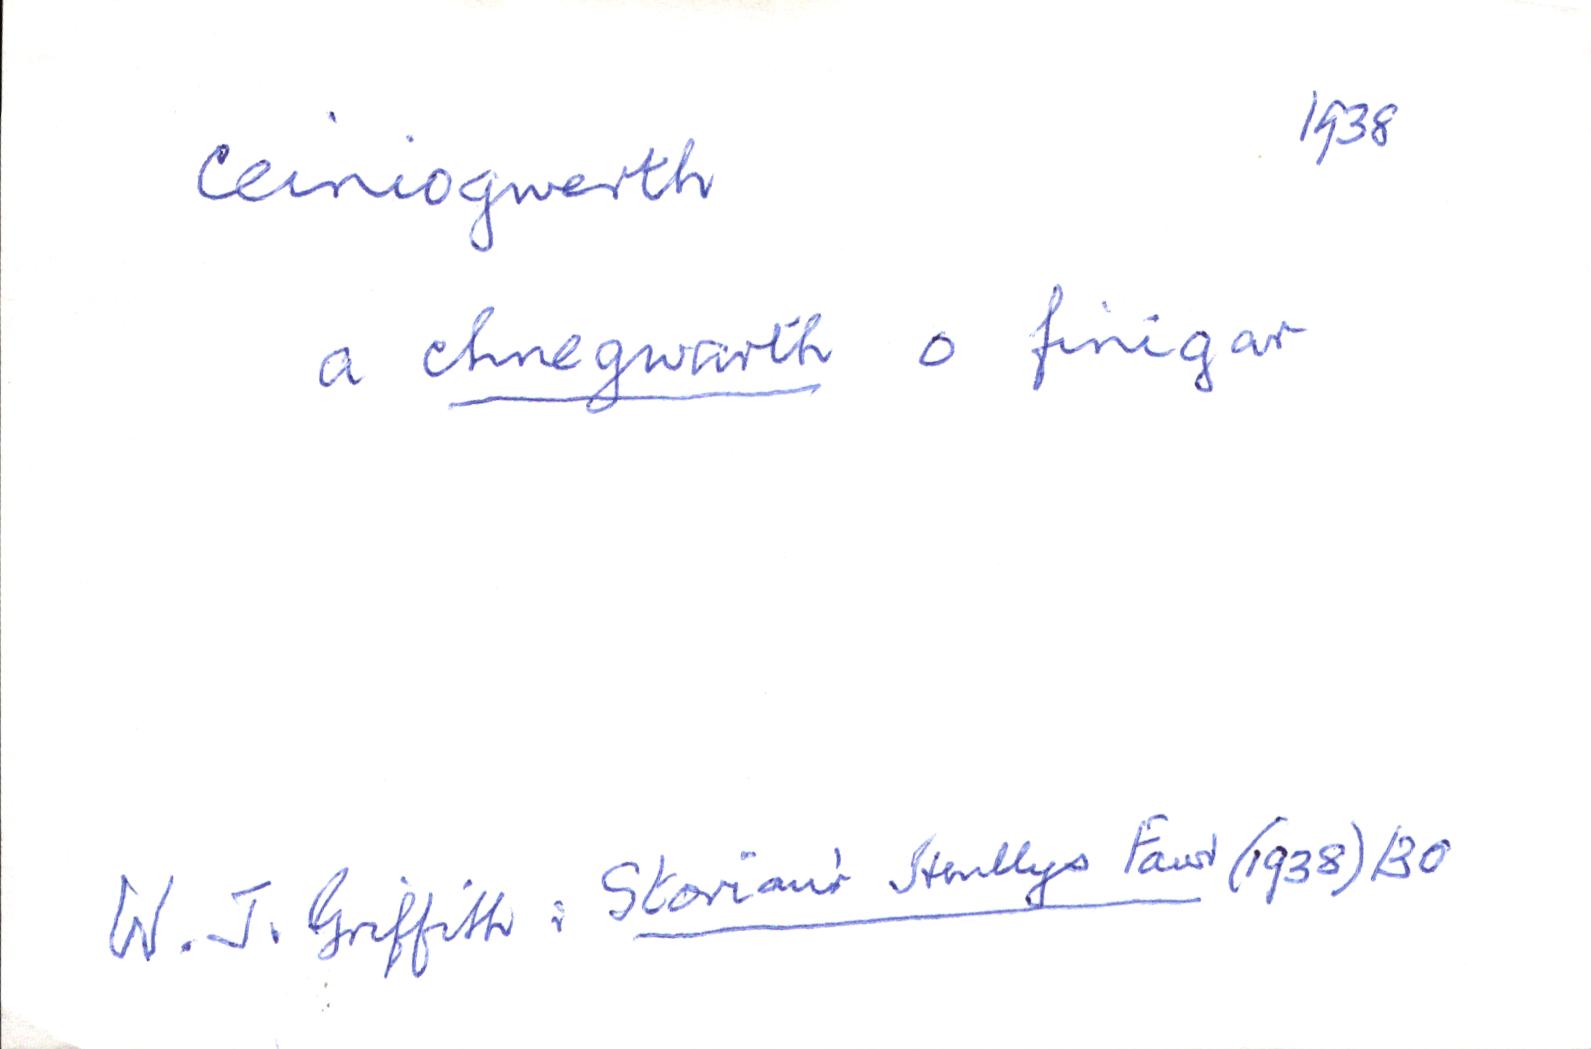 ceiniogwerth 1938
a chnegwarth o finigar
W. J. Griffith: Storïau'r Henllys Fawr (1938) 130